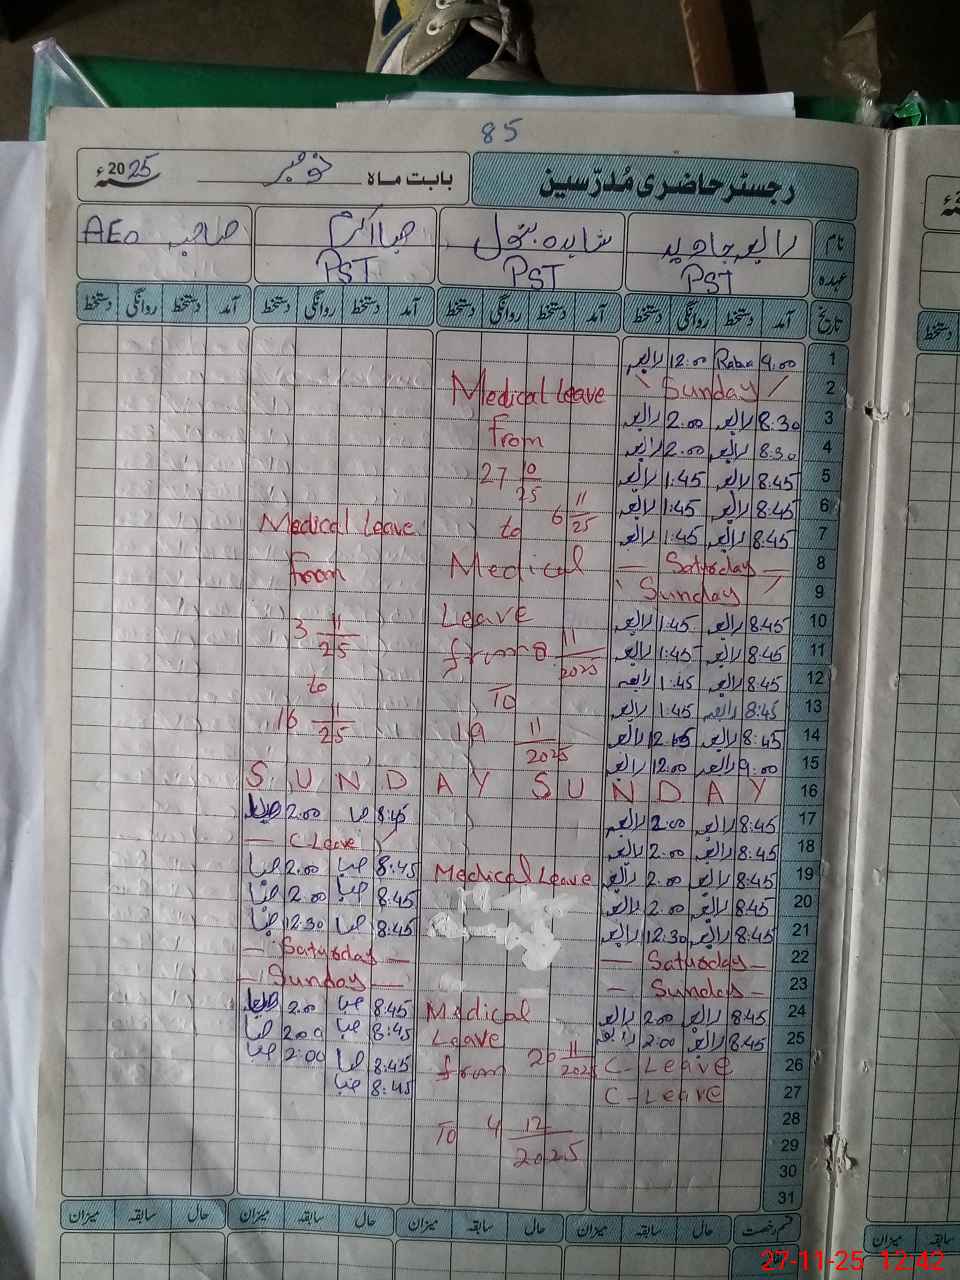 85
رجسٹر حاضری مُدرّسین بابت ماہ نومبر 2025ء
نام رابعہ جاوید شاہدہ بتول صبا اکرم صاحب AEO
عہدہ PST PST PST
تاریخ آمد دستخط روانگی دستخط آمد دستخط روانگی دستخط آمد دستخط روانگی دستخط آمد دستخط روانگی دستخط
1 9.00 Rabia 12.00 رابعہ
2 Sunday Medical Leave
3 8.30 رابعہ 2.00 رابعہ from
4 8:30 رابعہ 2.00 رابعہ
5 8:45 رابعہ 1:45 رابعہ 27 10/25
6 8:45 رابعہ 1:45 رابعہ 6 11/25 Medical Leave
7 8:45 رابعہ 1:45 رابعہ to
8 Saturday Medical from
9 Sunday
10 8:45 رابعہ 1:45 رابعہ Leave 3 11/25
11 8:45 رابعہ 1:45 رابعہ from 8 11/2025
12 8:45 رابعہ 1:45 رابعہ to
13 8:45 رابعہ 1:45 رابعہ To 16 11/25
14 8:45 رابعہ 12.45 رابعہ 19 11/2025
15 9:00 رابعہ 12.00 رابعہ
16 S U N D A Y S U N D A Y
17 8:45 رابعہ 2.00 رابعہ 8:45 صبا 2.00 صبا
18 8:45 رابعہ 2.00 رابعہ C Leave
19 8:45 رابعہ 2.00 رابعہ Medical Leave 8:45 صبا 2.00 صبا
20 8:45 رابعہ 2.00 رابعہ 8:45 صبا 2.00 صبا
21 8:45 رابعہ 12.30 رابعہ 8:45 صبا 12:30 صبا
22 Saturday Saturday
23 Sunday Sunday
24 8:45 رابعہ 2.00 رابعہ Medical 8:45 صبا 2.00 صبا
25 8:45 رابعہ 2:00 رابعہ Leave 8:45 صبا 2.00 صبا
26 C-Leave from 20 11/2025 8:45 صبا 2:00 صبا
27 C-Leave 8:45 صبا
28 To 4 12/2025
29
30
31
قسم رخصت حال سابقہ میزان حال سابقہ میزان حال سابقہ میزان حال سابقہ میزان
27-11-25 12:42